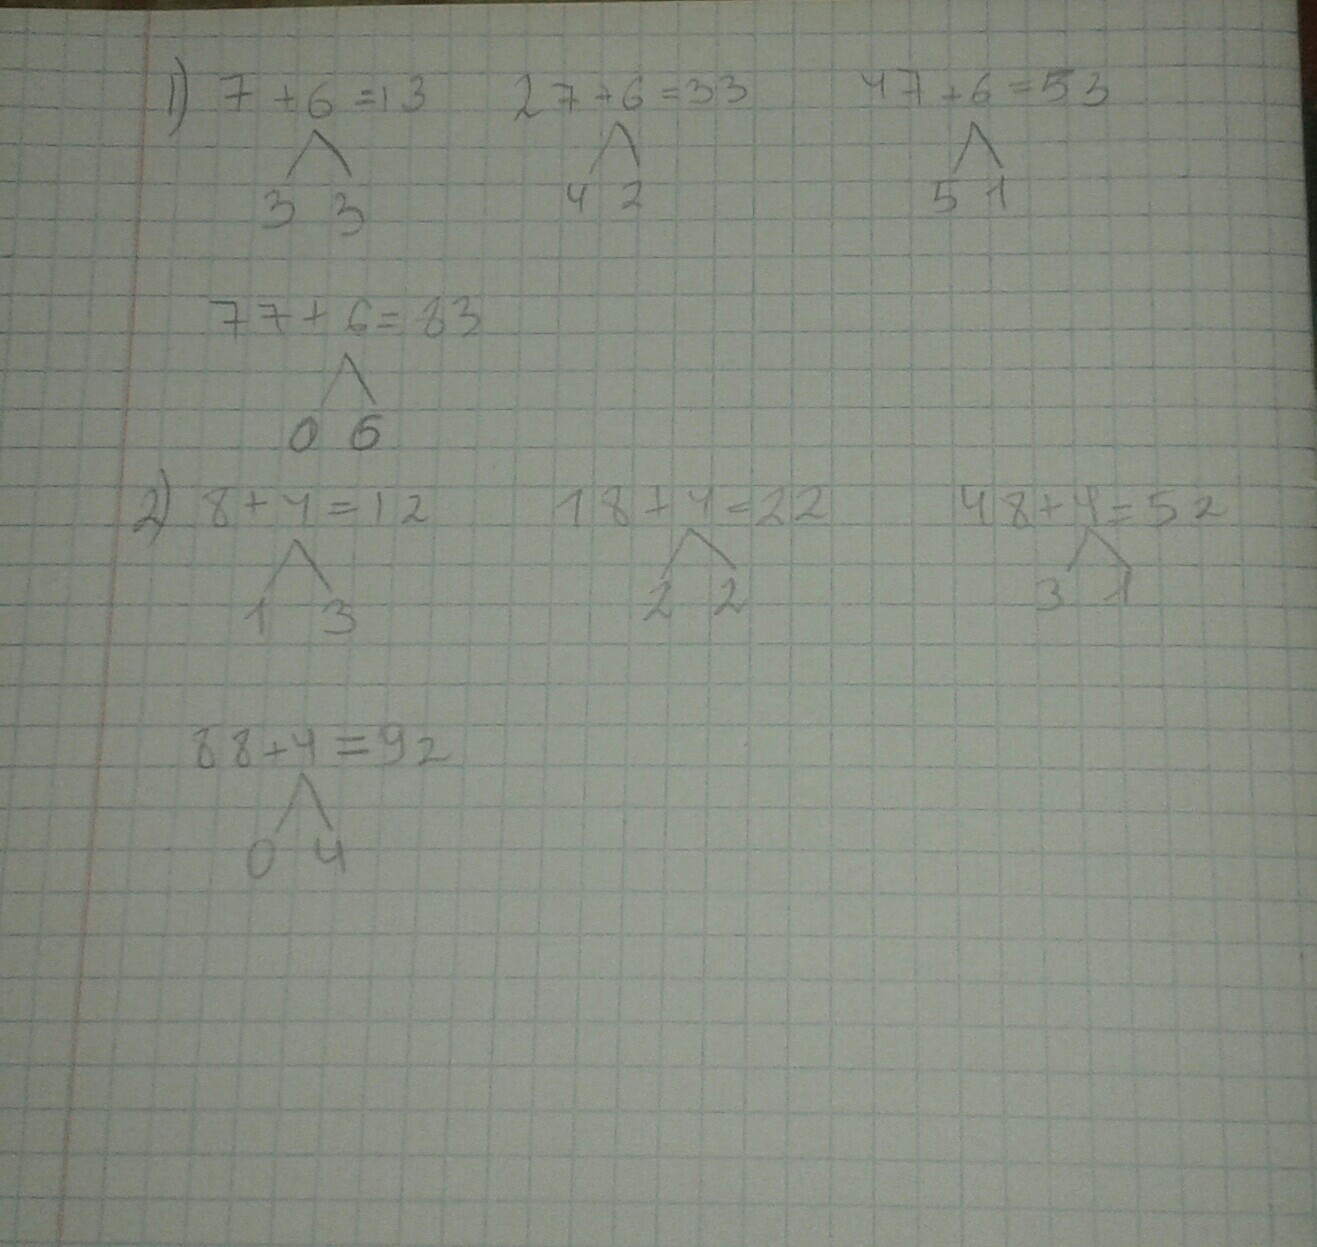 1) 7+6=13 27+6=33 47+6=53
3 3 4 2 5 1
77+6=83
0 6
2) 8+4=12 18+4=22 48+4=52
1 3 2 2 3 1
88+4=92
0 4